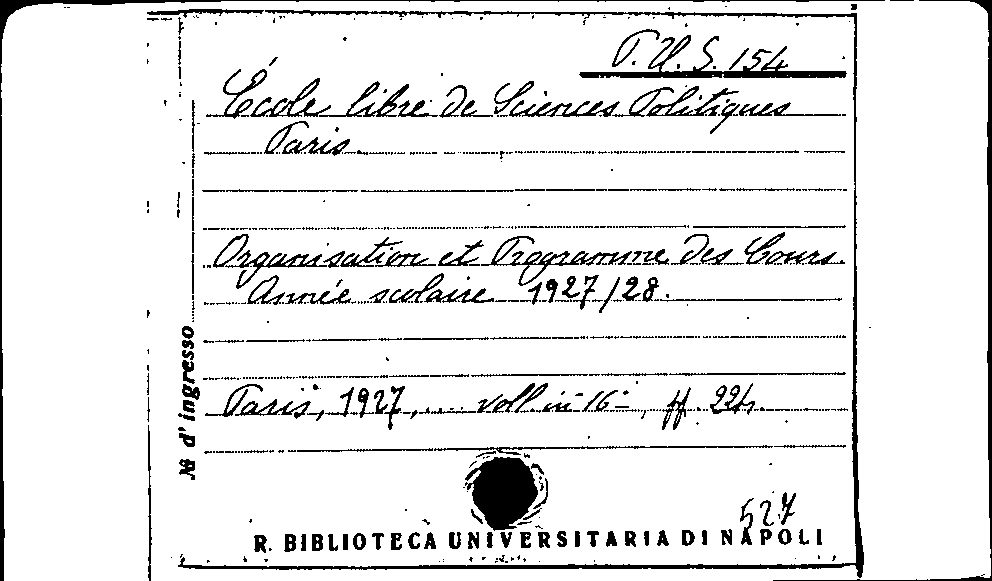 P. U. S. 154
École libre de Sciences Politiques
Paris.
Organisation et Programme des Cours.
Année scolaire 1927/28.
Paris, 1927, .... voll in 16°, ff. 224.
№ d'ingresso
527
R. BIBLIOTECA UNIVERSITARIA DI NAPOLI